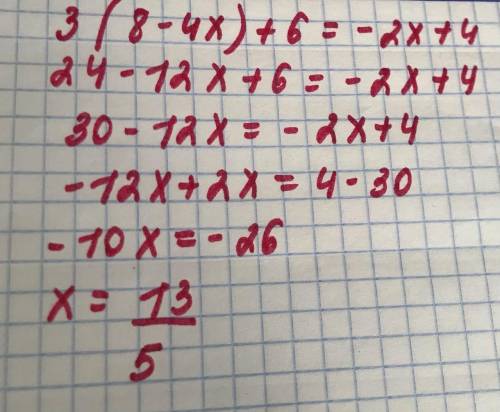 3(8-4x)+6=-2x+4
24-12x+6=-2x+4
30-12x=-2x+4
-12x+2x=4-30
-10x=-26
x=13/5